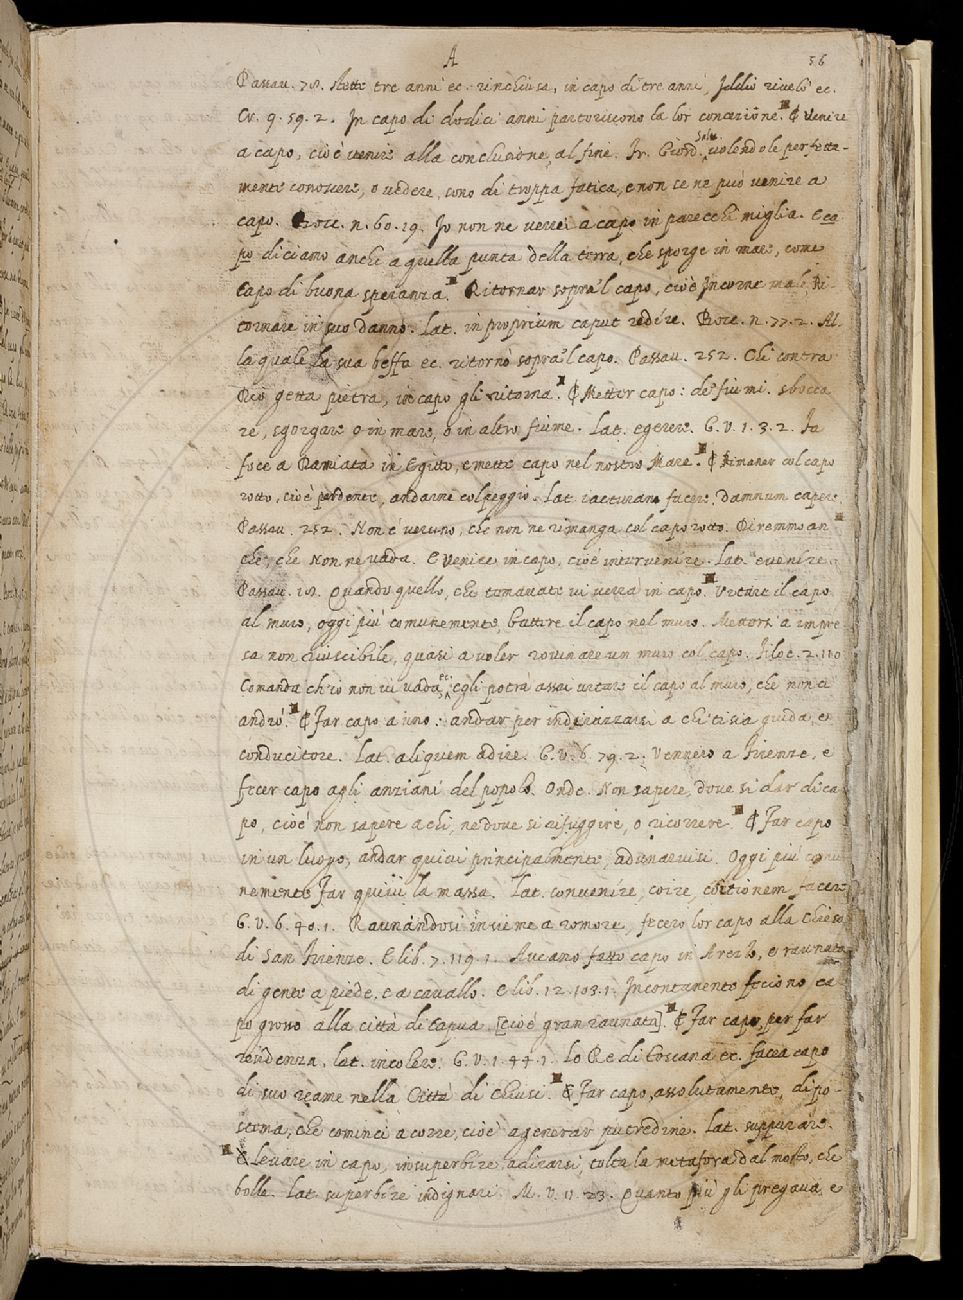 A
56
Passau. 78. Stette tre anni ec. rinchiusa, in capo di tre anni, Iddio rivelò ec.
Cr. 9. 59. 2. In capo di dodici anni partoriscono la lor concezione. ¶ Venire
a capo, cioè venire alla conclusione, al fine. Fr. Giord. Salu. volendole perfetta-
mente conoscere, o vedere, sono di troppa fatica, e non se ne può venire a
capo. Bocc. n. 60. 19. Io non ne verrei à capo in parecchi miglia. E ca
po diciamo anche a quella punta della terra, che sporge in mare, come
Capo di buona speranza. Ritornar sopra'l capo, cioè Incorne male Ri-
tornare in suo danno. Lat. in proprium caput redire. Bocc. n. 77. 2. Al-
la quale la sua beffa ec. ritornò sopra'l capo. Passau. 252. Chi contra
Dio getta pietra, in capo gli ritorna. ¶ Metter capo: de' fiumi. sbocca
re, sgorgare o in mare, o in altro fiume. Lat. egerere. G. V. 1. 3. 2. Fa
foce a Damiata in Egitto, e mette capo nel nostro Mare. ¶ Rimaner col capo
rotto, cioè perdente, andarne col peggio. Lat. iacturam facere, damnum capere
Passau. 252. Non è veruno, che non ne rimanga col capo rotto. Diremmo an
che, che Non ne vada. E Venire in capo, cioè intervenire. Lat. evenire
Passau. 18. Quando quello, che temavate vi verrà in capo. Vrtare il capo
al muro, oggi più comunemente, battere il capo nel muro. Mettersi a impre
sa non riuscibile, quasi a voler rovinare un muro col capo. Filoc. 2. 110
Comanda ch'io non vi vada ec. egli potrà assai urtare il capo al muro, che non ci
andrò. ¶ Far capo a uno: andar per indirizzarsi a chi ti sia guida, e
conducitore. Lat. aliquem adire. G. V. 6. 79. 2. Vennero a Firenze, e
fecer capo agli anziani del popolo. Onde. Non sapere, dove si dar di ca
po, cioè non sapere a chi, ne dove si rifuggire, o ricorrere. ¶ Far capo
in un luogo, andar quivi principalmente, adunarvisi. Oggi più comu
nemente Far quivi la massa. Lat. convenire, coire, coitionem facere
G. V. 6. 40. 1. Raunandosi insieme a romore, fecero lor capo alla Chiesa
di San Firenze. E lib. 7. 119. 1. Aveano fatto capo in Arezzo, e raunata
di gente a piede, e a cavallo. E lib. 12. 103. 1. Incontanente feciono, ca
po grosso alla città di Capua. [cioè gran raunata]. ¶ Far capo, per far
residenza. Lat. incolere. G. V. 1. 44. 1. Lo Re di Toscana ec. facea capo
di suo reame nella Città di Chiusi. ¶ Far capo, assolutamente, di po-
stema, che cominci a corre, cioè a generar putredine. Lat. suppurare.
¶ Levare in capo, insuperbire, adirarsi, tolta la metafora dal mosto, che
bolle. Lat. superbire indignari. M. V. 11. 23. Quanto più gli pregava, e